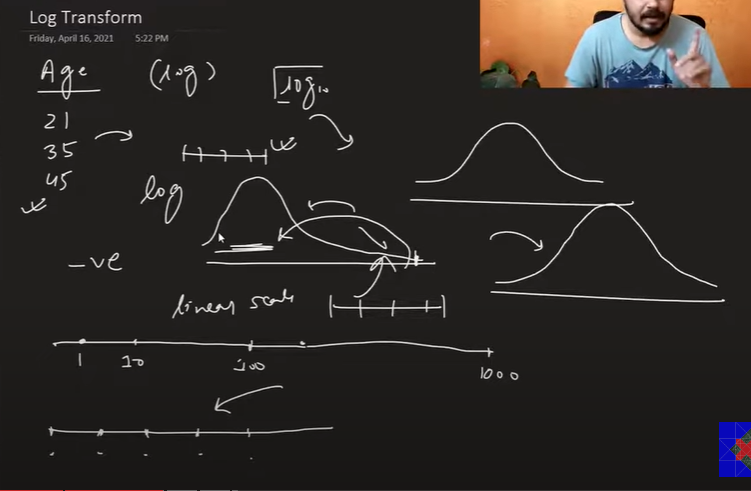 Log Transform
Friday, April 16, 2021 5:22 PM
Age (log) log10
21
35
45
log
-ve
linear scale
1 10 100 1000